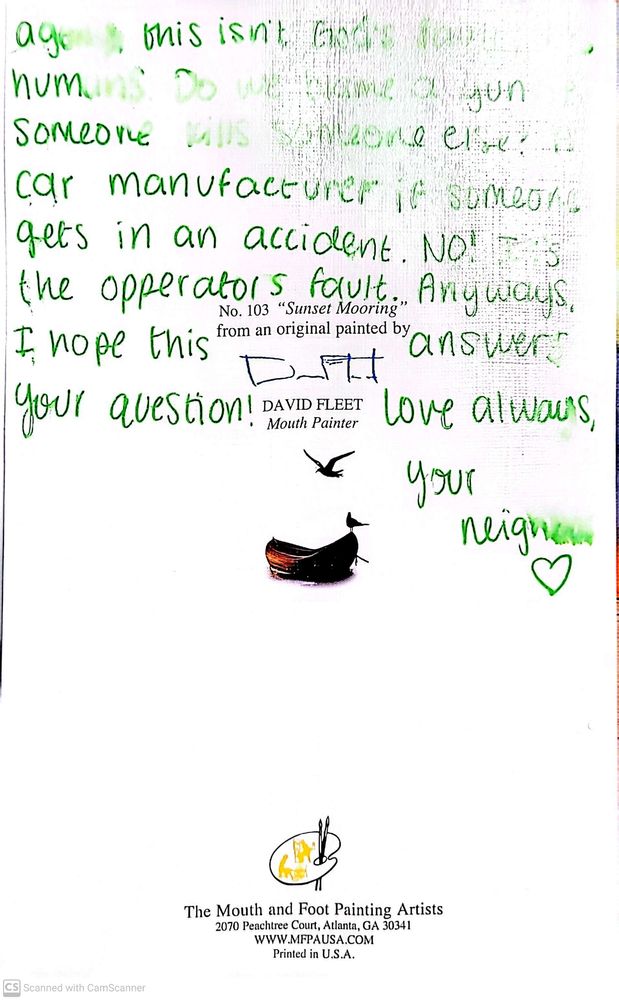 this isn't God's
Do we blame a gun
someone kills someone else?
car manufacturer if someone
gets in an accident. NO! It's
the opperators fault. Anyways,
No. 103 "Sunset Mooring"
from an original painted by
I hope this answers
your question! love always,
DAVID FLEET
Mouth Painter
your
The Mouth and Foot Painting Artists
2070 Peachtree Court, Atlanta, GA 30341
WWW.MFPAUSA.COM
Printed in U.S.A.
CS Scanned with CamScanner